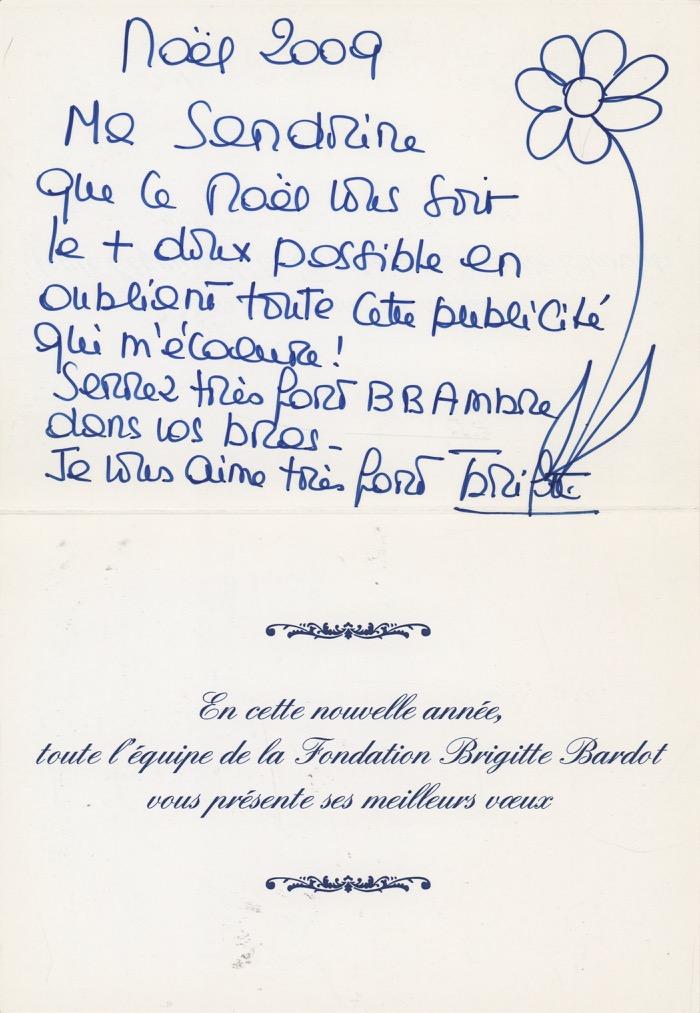 Noël 2009
Ma Sandrine
que ce Noël vous soit
le + doux possible en
oubliant toute cette publicité
qui m'écoeure !
Serrez très fort BBAmbre
dans vos bras_
Je vous aime très fort
En cette nouvelle année,
toute l'équipe de la Fondation Brigitte Bardot
vous présente ses meilleurs vœux